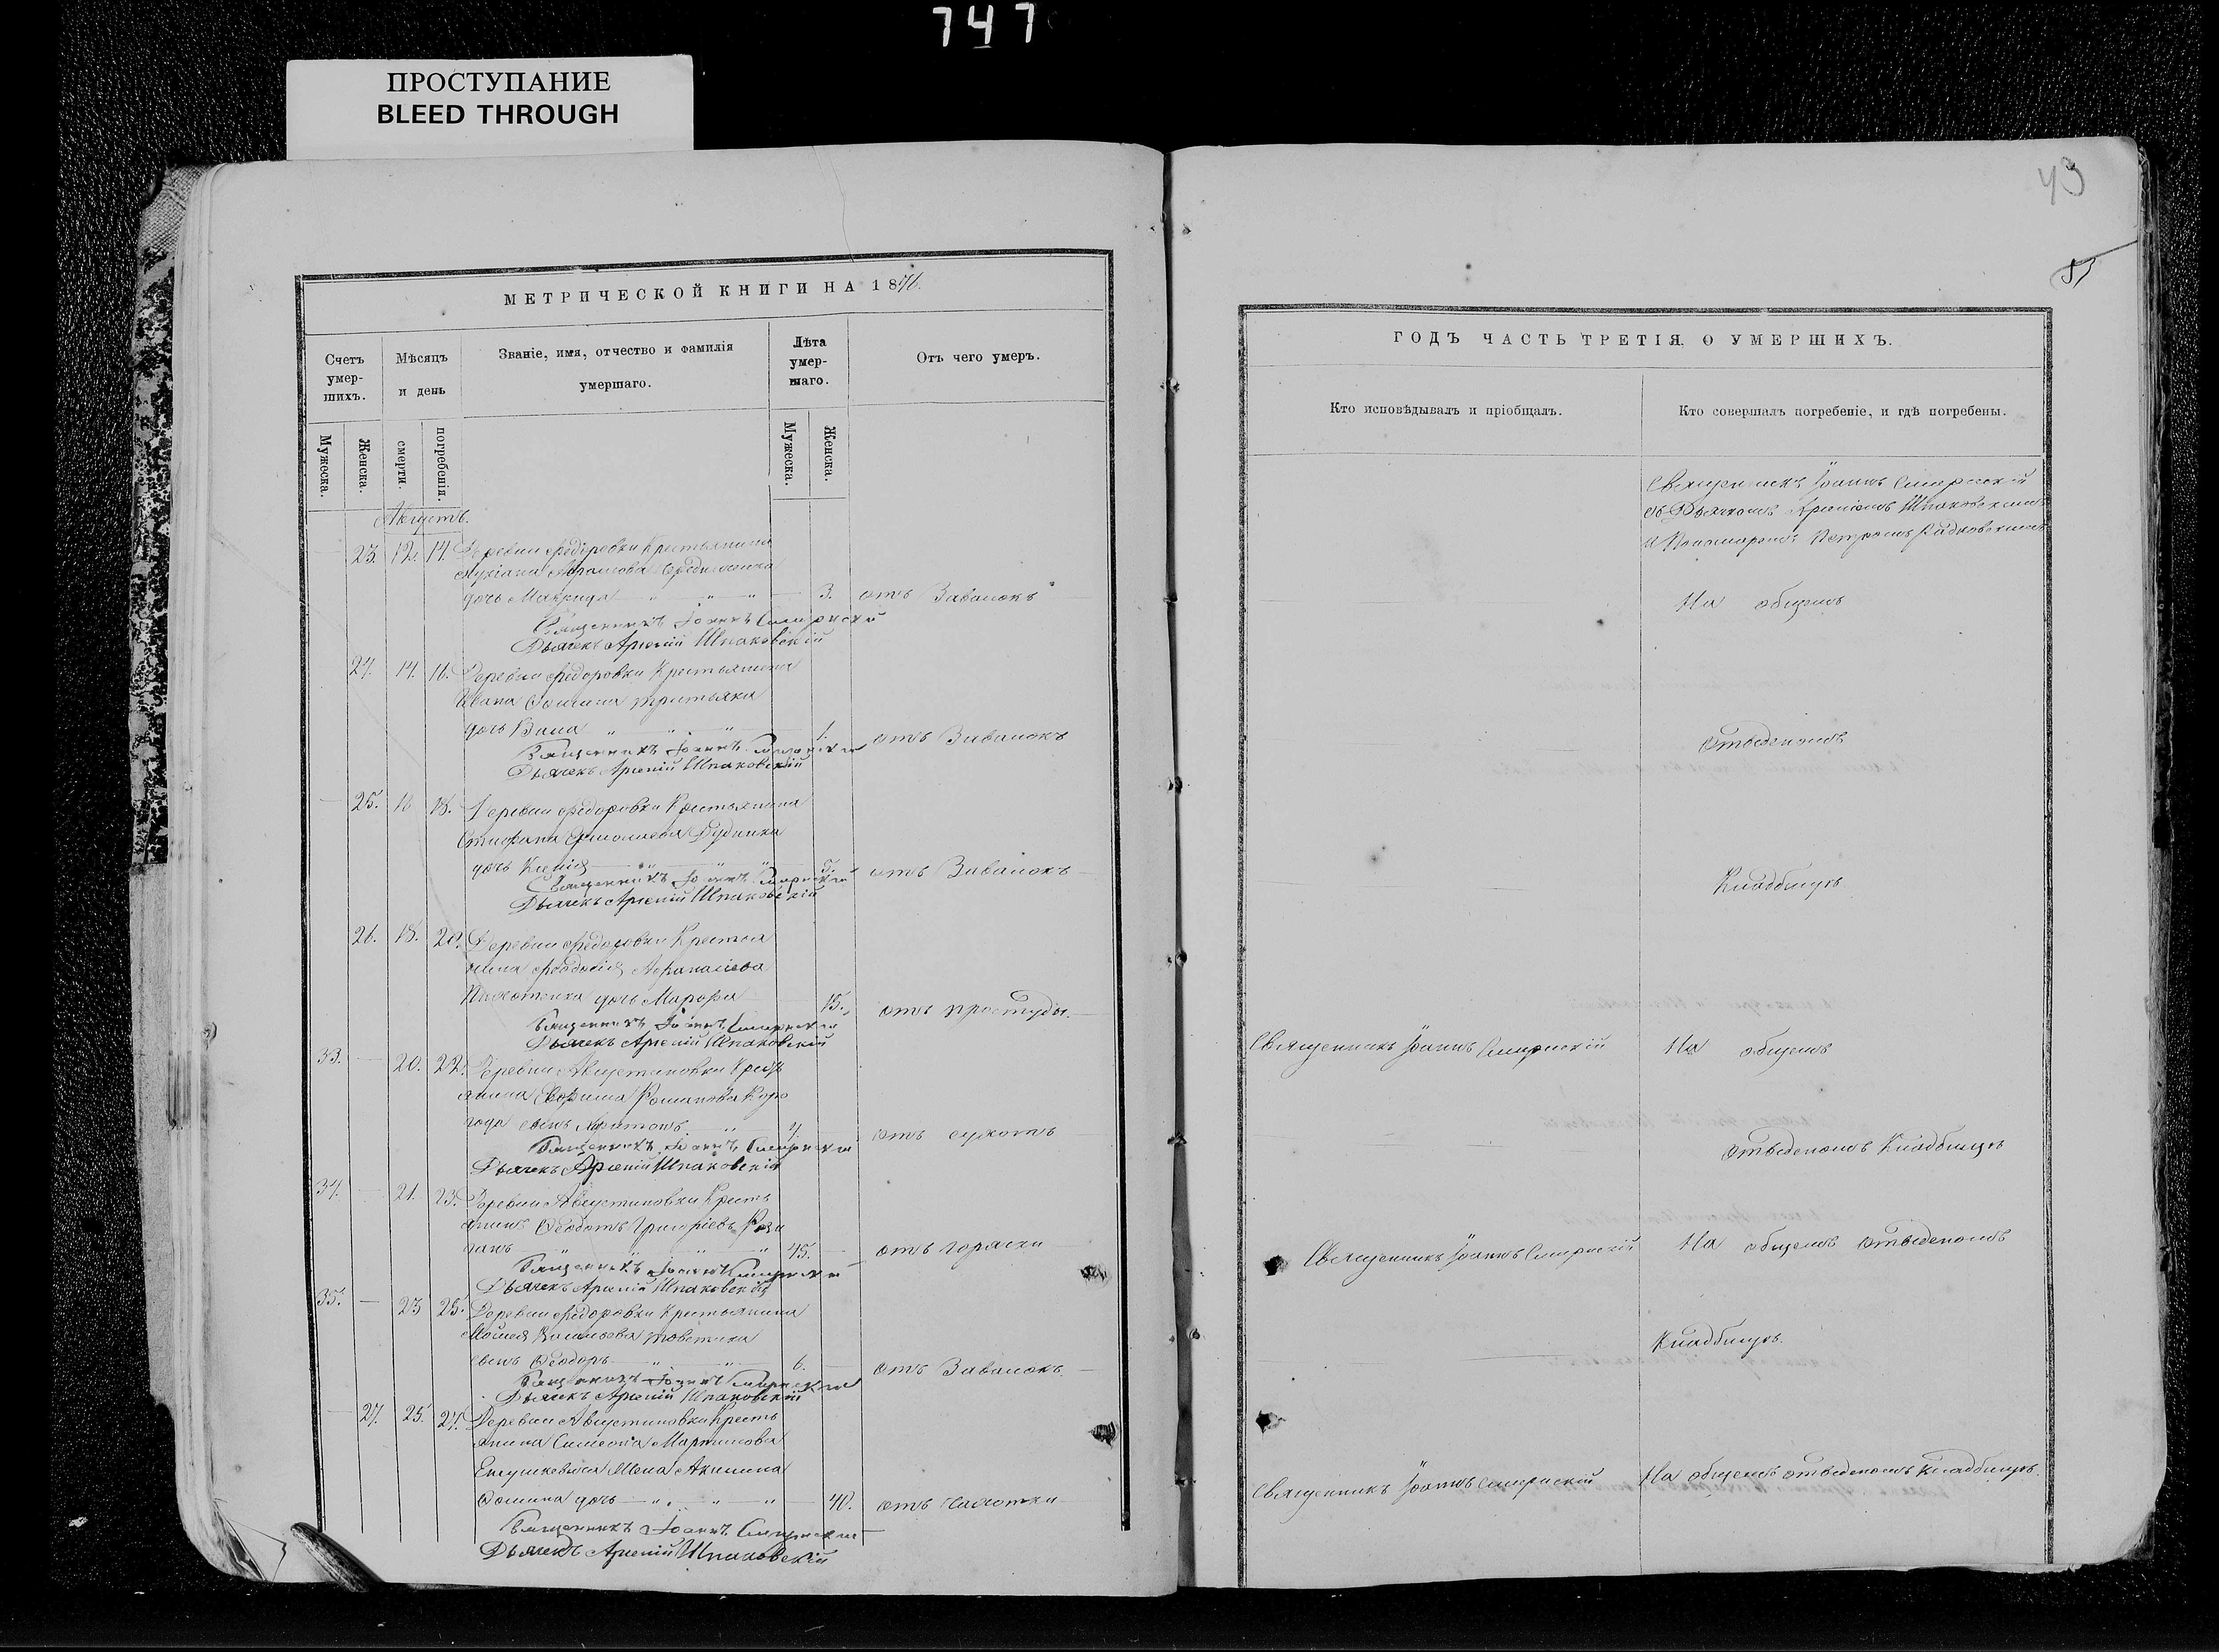 747
ПРОСТУПАНИЕ
BLEED THROUGH
43
МЕТРИЧЕСКОЙ КНИГИ НА 18
Счетъ умер-шихъ.
Мѣсяцъ и день
Званіе, имя, отчество и фамилія умершаго.
Лѣта умер-шаго.
Отъ чего умеръ.
Мужеска.
Женска.
смерти.
погребенія.
Мужеска.
Женска.
Августъ.
23. 12. 14. Деревни Федоровки Крестьянина
дочь 3. отъ Завалокъ
Священникъ Іоаннъ Смирнскій
Дьячекъ Арсеній Шпаковскій
14. 16. Деревни Федоровки Крестьянина
Ивана Фомина
дочь 1. отъ Завалокъ
Священникъ Іоаннъ Смирнскій
Дьячекъ Арсеній Шпаковскій
25. 18. Деревни Федоровки Крестьянина
Стефана Ермолаева Дудника
дочь Ксенія 5. отъ Завалокъ
Священникъ Іоаннъ Смирнскій
Дьячекъ Арсеній Шпаковскій
26. 18. 20. Деревни Федоровки Крестья
нина Афанасіева
дочь Марфа 15. отъ простуды.
Священникъ Іоаннъ Смирнскій
Дьячекъ Арсеній Шпаковскій
33. 20. 22. Деревни Августиновки Кресть
янина Романова Коро
сынъ отъ сухотъ
Священникъ Іоаннъ Смирнскій
Дьячекъ Арсеній Шпаковскій
34. 21. 23. Деревни Августиновки Кресть
янинъ Феодотъ Григоріевъ
45. отъ горячки
Священникъ Іоаннъ Смирнскій
Дьячекъ Арсеній Шпаковскій
35. 23 25. Деревни Федоровки Крестьянина
Васильева
сынъ Феодоръ 6. отъ Завалокъ
Священникъ Іоаннъ Смирнскій
Дьячекъ Арсеній Шпаковскій
27. 25. 27. Деревни Августиновки Кресть
янина Симеона Мартинова
жена Акилина
Фомина дочь 40. отъ чахотки
Священникъ Іоаннъ Смирнскій
Дьячекъ Арсеній Шпаковскій
ГОДЪ ЧАСТЬ ТРЕТІЯ. О УМЕРШИХЪ.
Кто исповѣдывалъ и пріобщалъ.
Кто совершалъ погребеніе, и гдѣ погребены.
Священникъ Іоаннъ Смирнскій
съ Дьячкомъ Арсеніемъ Шпаковскимъ
и Пономаремъ Петромъ
На общемъ
отведеномъ
Кладбищѣ
Священникъ Іоаннъ Смирнскій На общемъ
отведеномъ Кладбищѣ
Священникъ Іоаннъ Смирнскій На общемъ отведеномъ
Кладбищѣ.
Священникъ Іоаннъ Смирнскій На общемъ отведеномъ кладбищѣ.